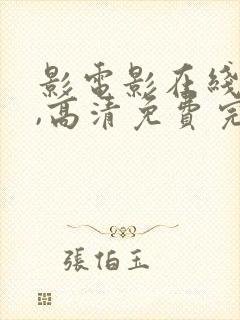 影電影在綫
,高清免費完
張伯玉